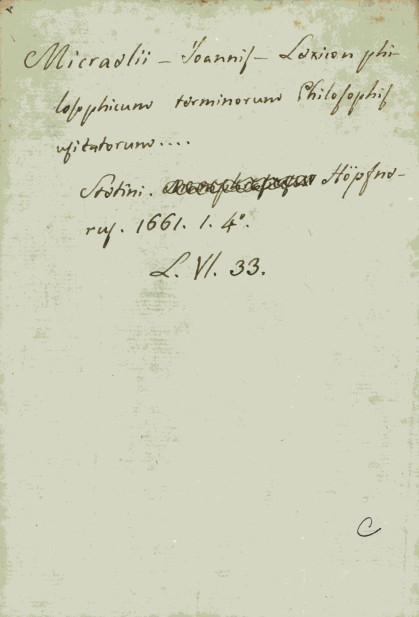 Micraelii – Joannis – Lexicon phi-
losophicum terminorum Philosophis
usitatorum....
Stetini. Höpfne-
rus. 1661. 1. 4º.
L. VI. 33.
C